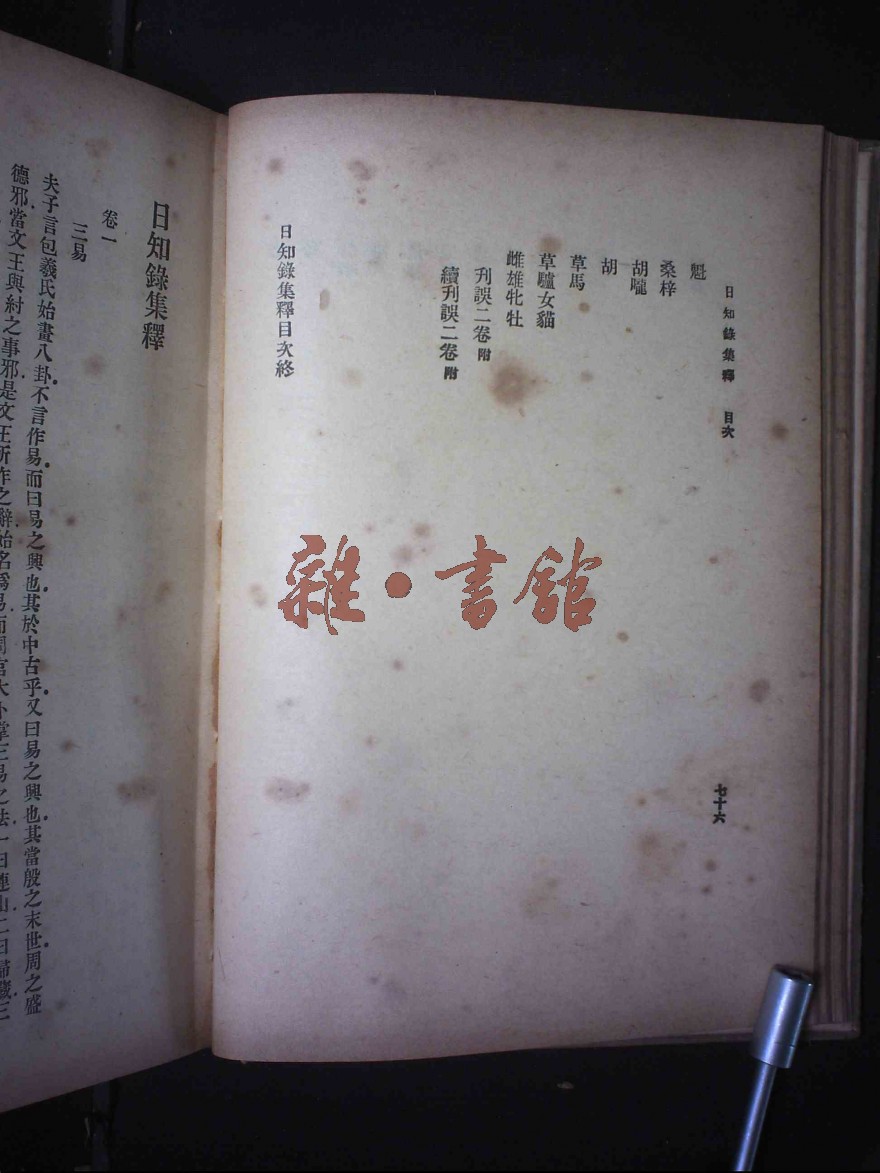 日知錄集釋 目次
魁
桑梓
胡嚨
胡
草馬
草驢女貓
雌雄牝牡
刋誤二卷附
續刋誤二卷附
日知錄集釋目次終
七十六
雜·書館
日知錄集釋
卷一
三易
夫子言包羲氏始畫八卦不言作易而曰易之興也其於中古乎又曰易之興也其當殷之末世周之盛
德邪當文王與紂之事邪是文王所作之辭始名爲易而周官大卜掌三易之法一曰連山二曰歸藏三